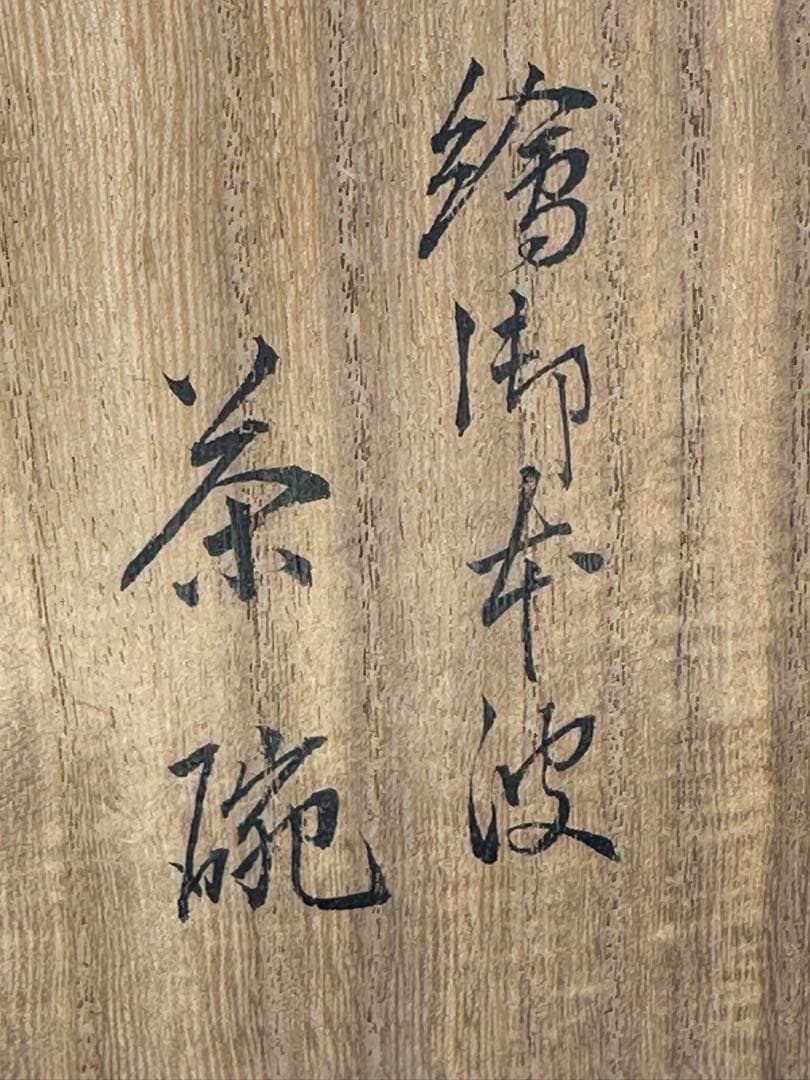 繪御本波
茶碗